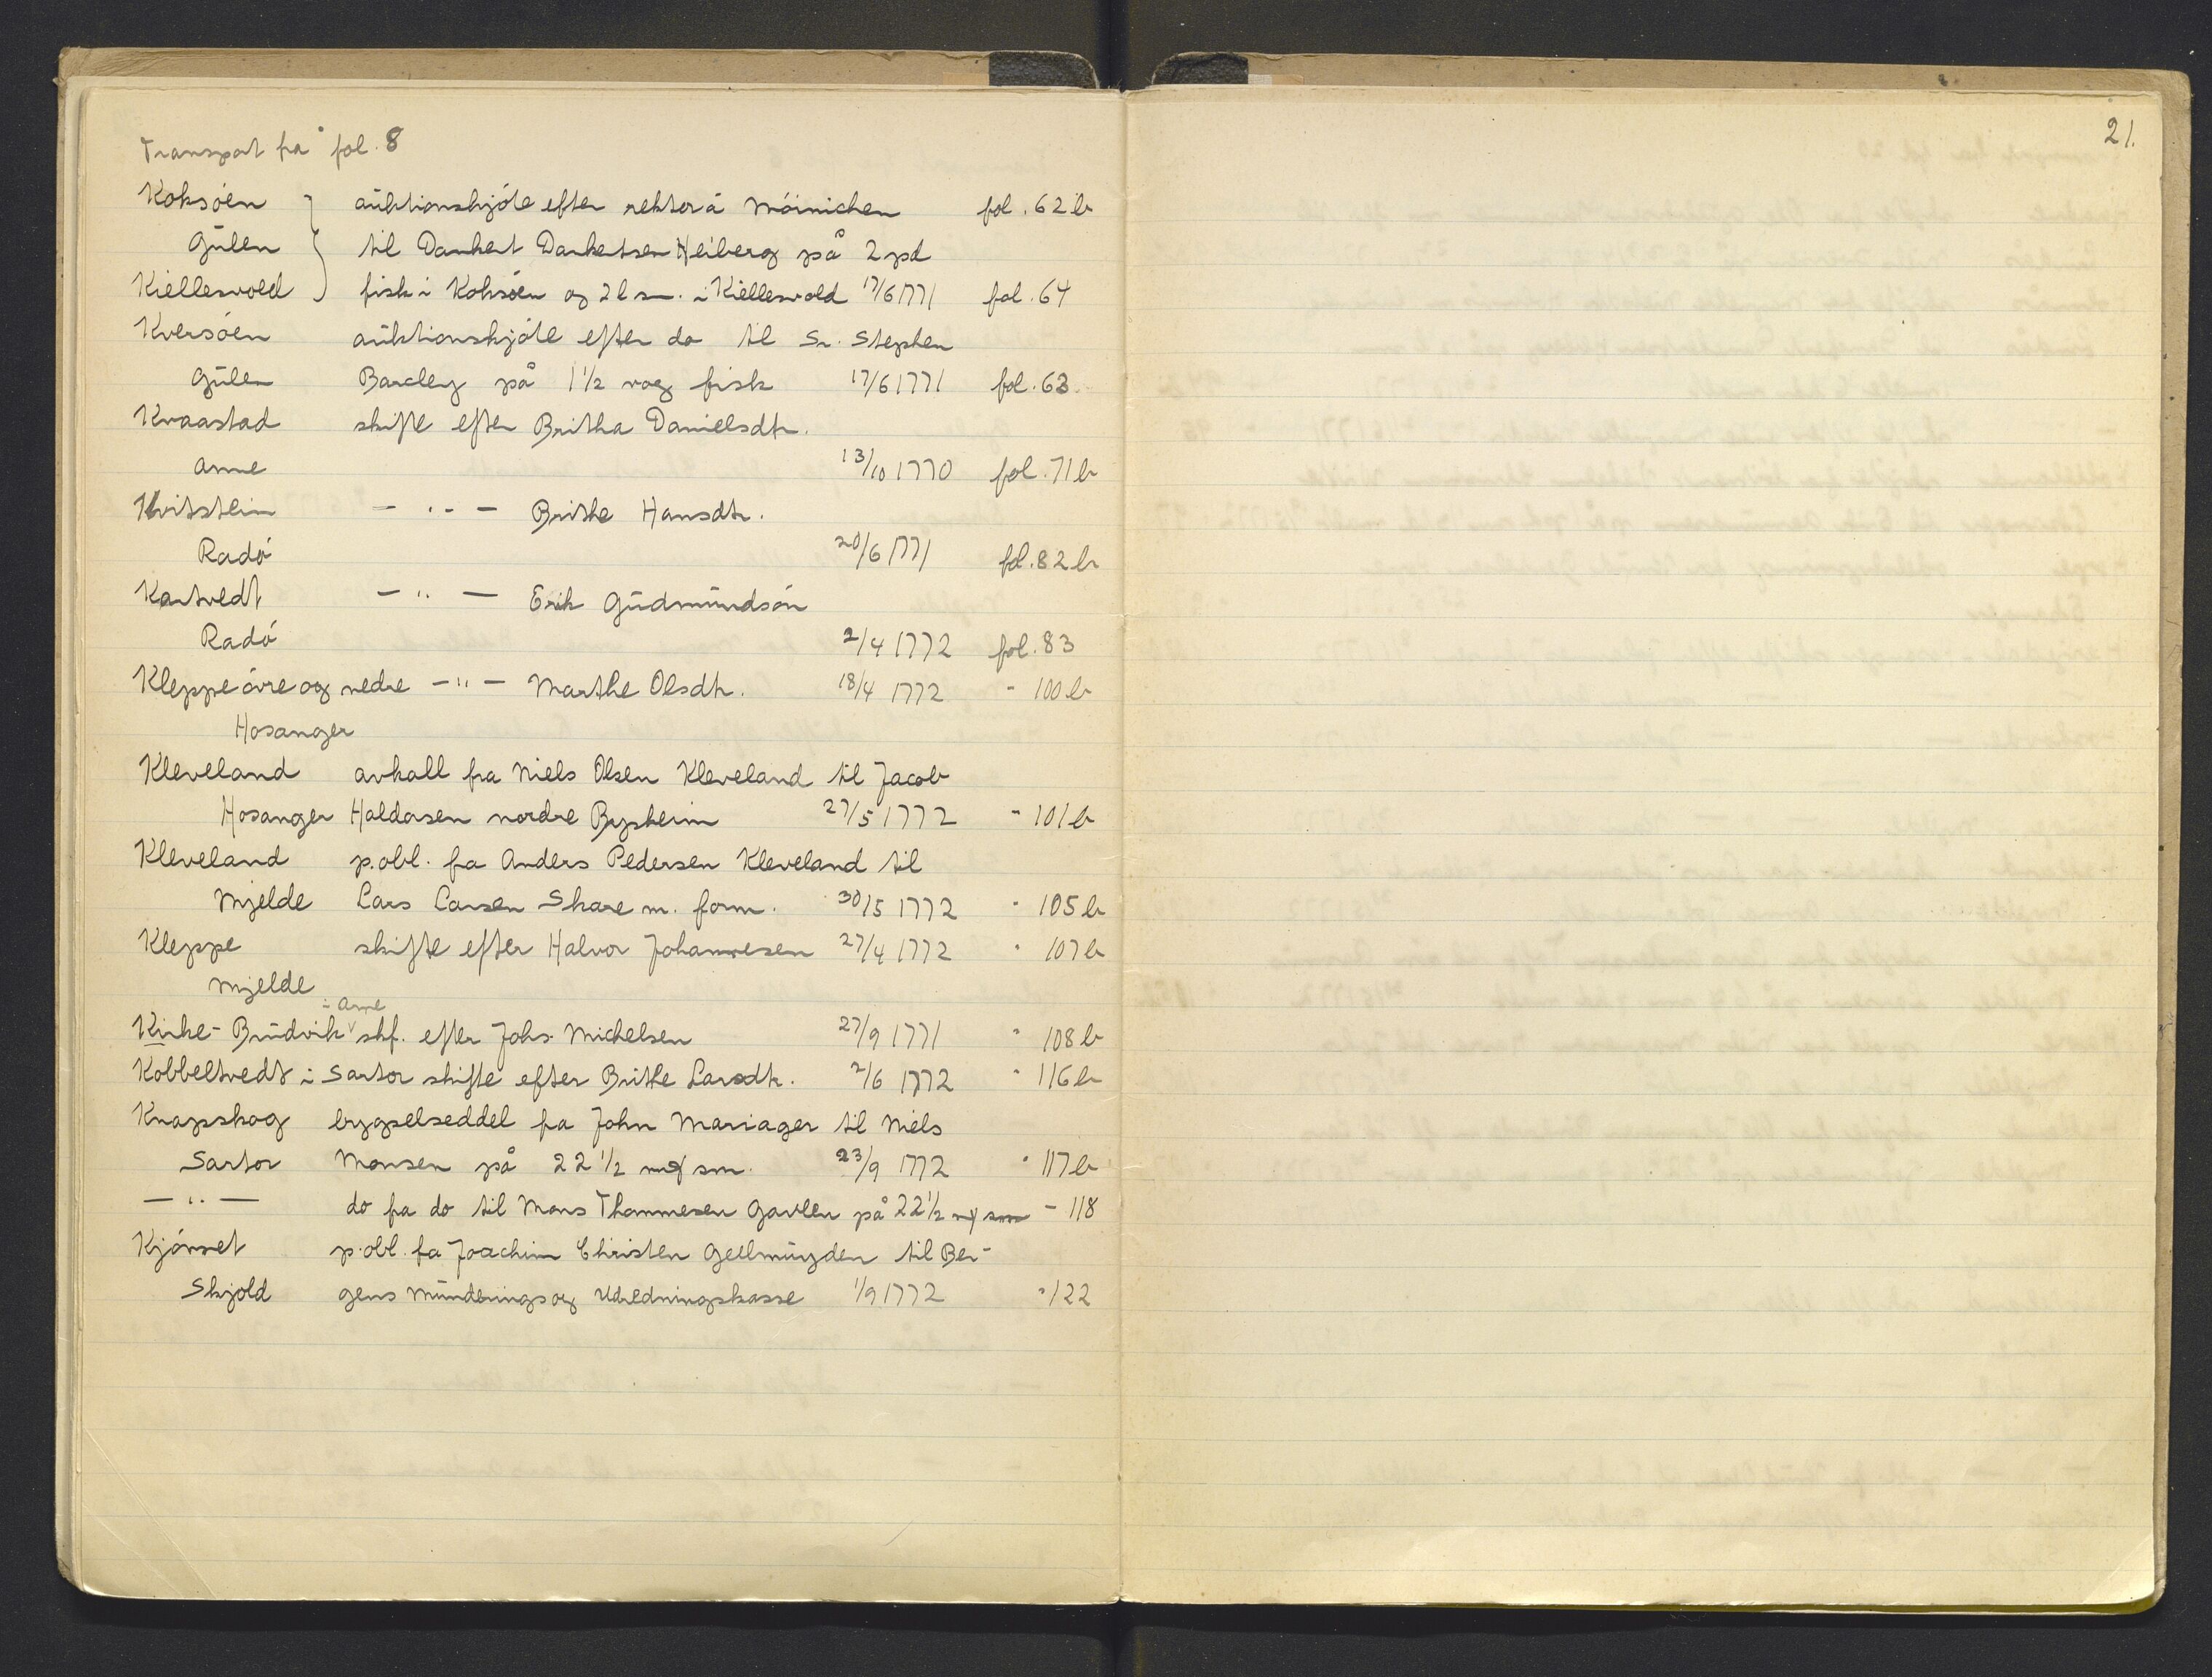 21.
Transport fra fol. 8
Koksøen auktionskjøte efter rektor á Möinichen fol. 62 b
Gulen til Dankert Dankertsen Heiberg på 2 pd
Kiellesvold fisk i Koksøen og 2 l sm. i Kiellesvold 17/6 1771 fol. 64
Kversøen auktionskjøte efter do til Sr. Stephen
Gulen Barcley på 1 1/2 vog fisk 17/6 1771 fol. 63.
Kvaastad skifte efter Britha Danielsdtr.
Arne 13/10 1770 fol. 71 b
Kvitstein - " - Brithe Hansdtr.
Radø 20/6 1771 fol. 82 b
Kartvedt - " - Erik Gudmundsøn
Radø 2/4 1772 fol. 83
Kleppe øvre og nedre - " - Marthe Olsdtr. 18/4 1772 - 100 b
Hosanger
Kleveland avkall fra Niels Olsen Kleveland til Jacob
Hosanger Haldorsen nordre Bysheim 27/5 1772 - 101 b
Kleveland p.obl. fra Anders Pedersen Kleveland til
Mjelde Lars Larsen Skare m. form. 30/5 1772 " 105 b
Kleppe skifte efter Halvor Johannesen 27/4 1772 " 107 b
Mjelde
i Arne
Kirke-Brudvik skf. efter Johs. Michelsen 27/9 1771 " 108 b
Kobbeltvedt i Sartor skifte efter Brithe Larsdtr. 2/6 1772 " 116 b
Knapskog bygselseddel fra John Mariager til Niels
Sartor Monsen på 22 1/2 mrk sm. 23/9 1772 " 117 b
- " - do fra do til Mons Thommesen Gavlen på 22 1/2 mrk sm - 118
Kjørvet p.obl. fra Joachim Christen Geelmuyden til Ber-
Skjold gens Munderings og Udredningskasse 1/9 1772 " 122